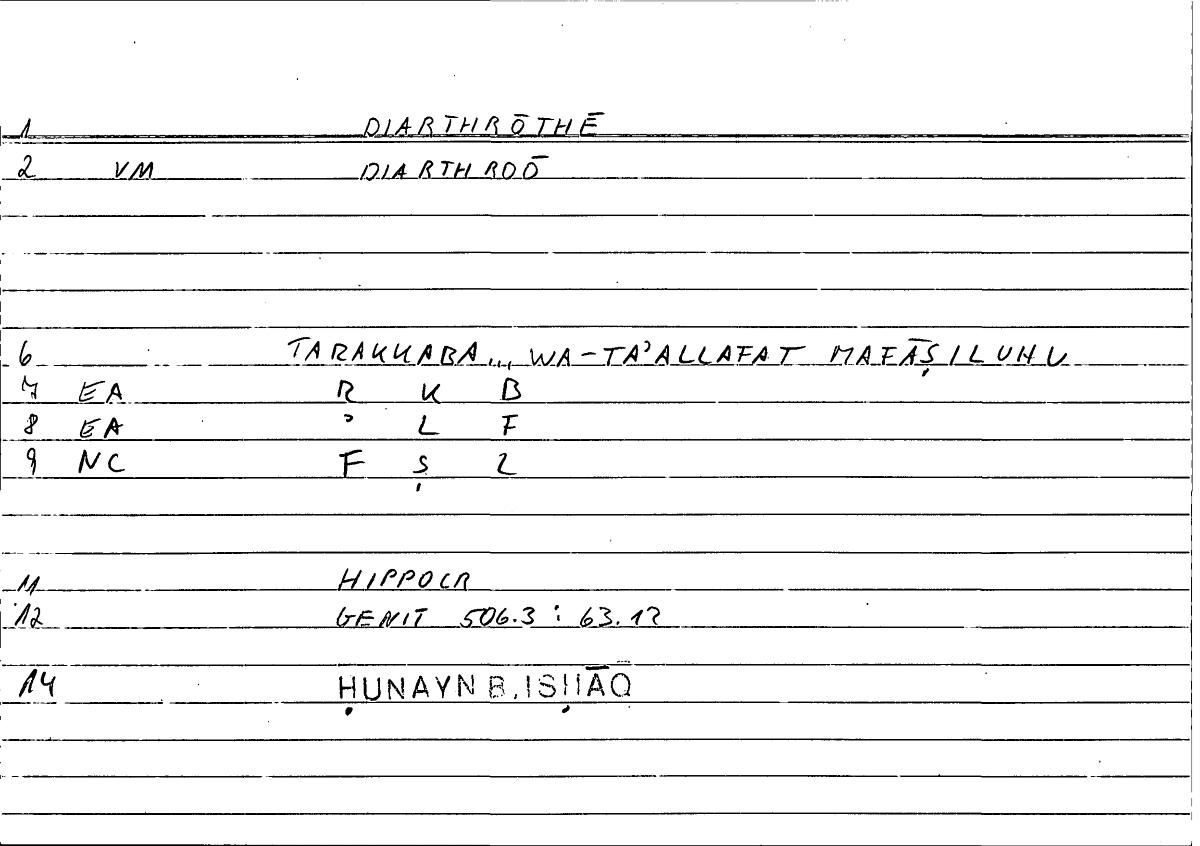 1 DIARTHRŌTHĒ
2 VM DIARTHROŌ
6 TARAKKABA... WA-TAʾALLAFAT MAFĀṢILUHU
7 EA R K B
8 EA ʾ L F
9 NC F Ṣ L
11 HIPPOCR
12 GENIT 506.3 : 63.12
14 ḤUNAYN B. ISḤĀQ